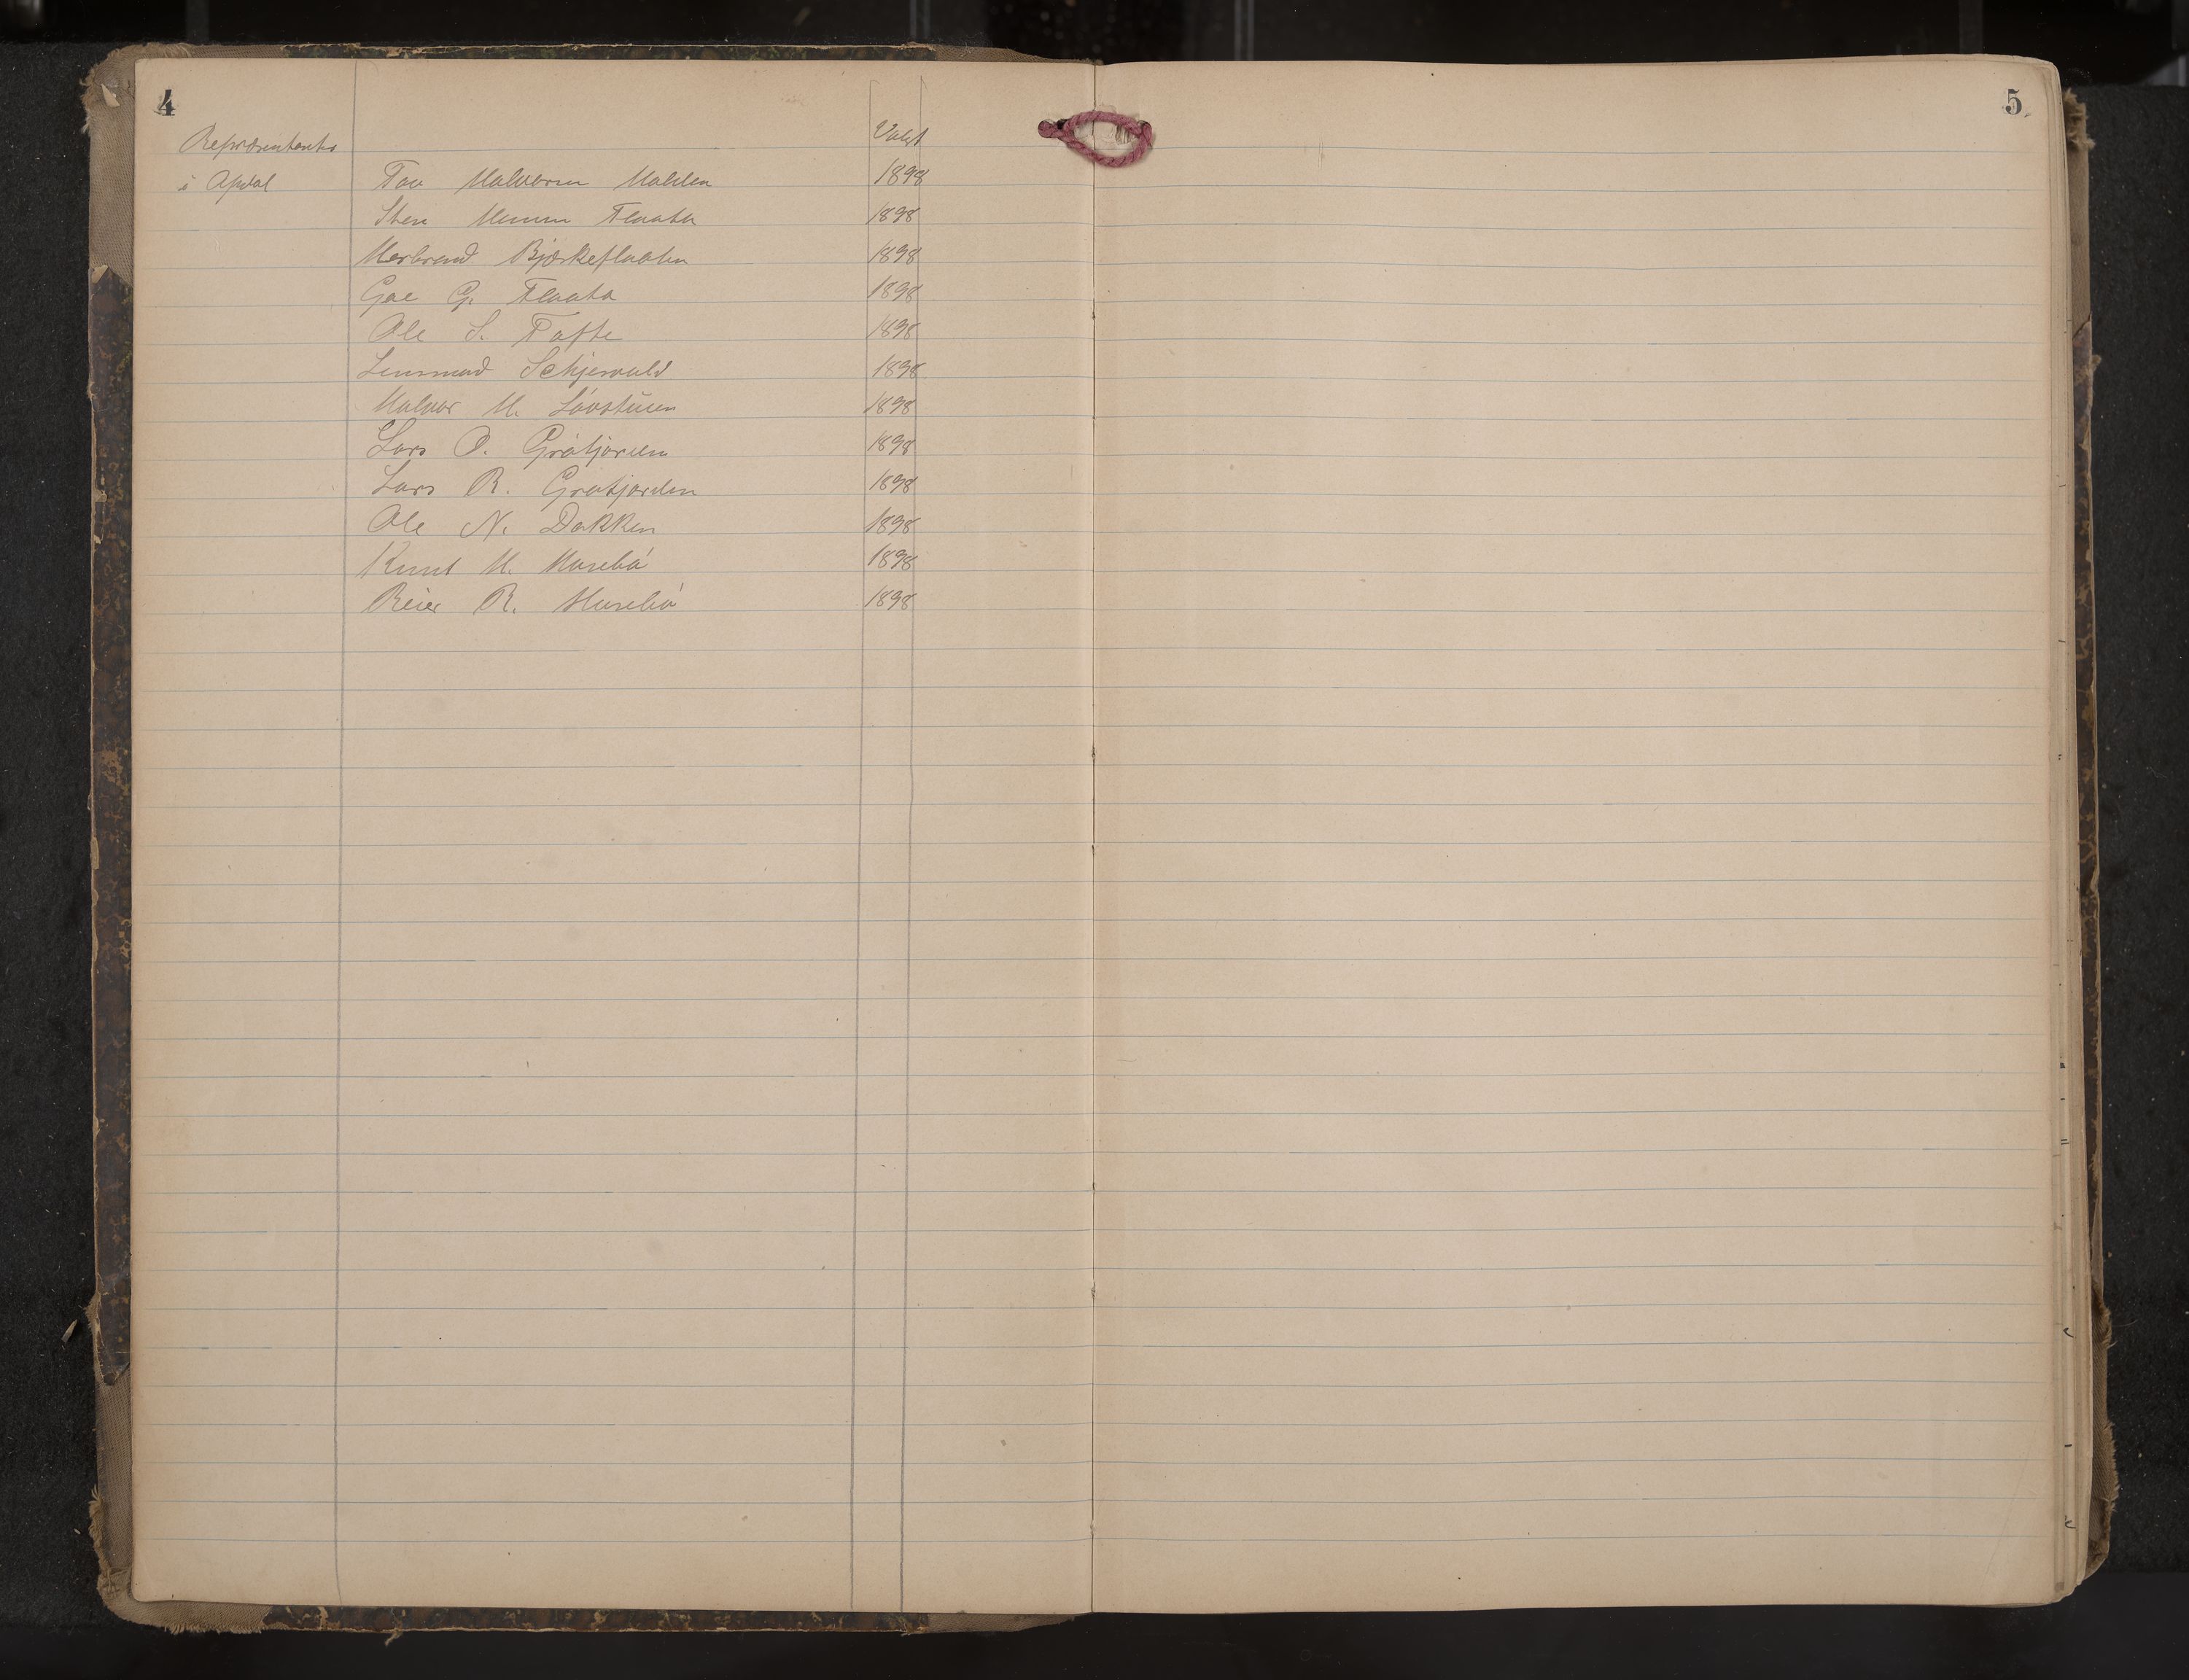 4
5.
Repræsentanter
Valgt
i Opdal Tov Halvorsen Hahlen 1898
Sten Flaata 1898
Herbrand Bjørkeflaaten 1898
Gol G. Flaata 1898
Ole S. Tofte 1898
Lensmand Schjervold 1898
Halvor H. Lóvstuen 1898
Lars O. Gråtjorden 1898
Lars R. Gråtjorden 1898
Ole N. Dokken 1898
Knut H. Husebó 1898
Reier R. Husebó 1898